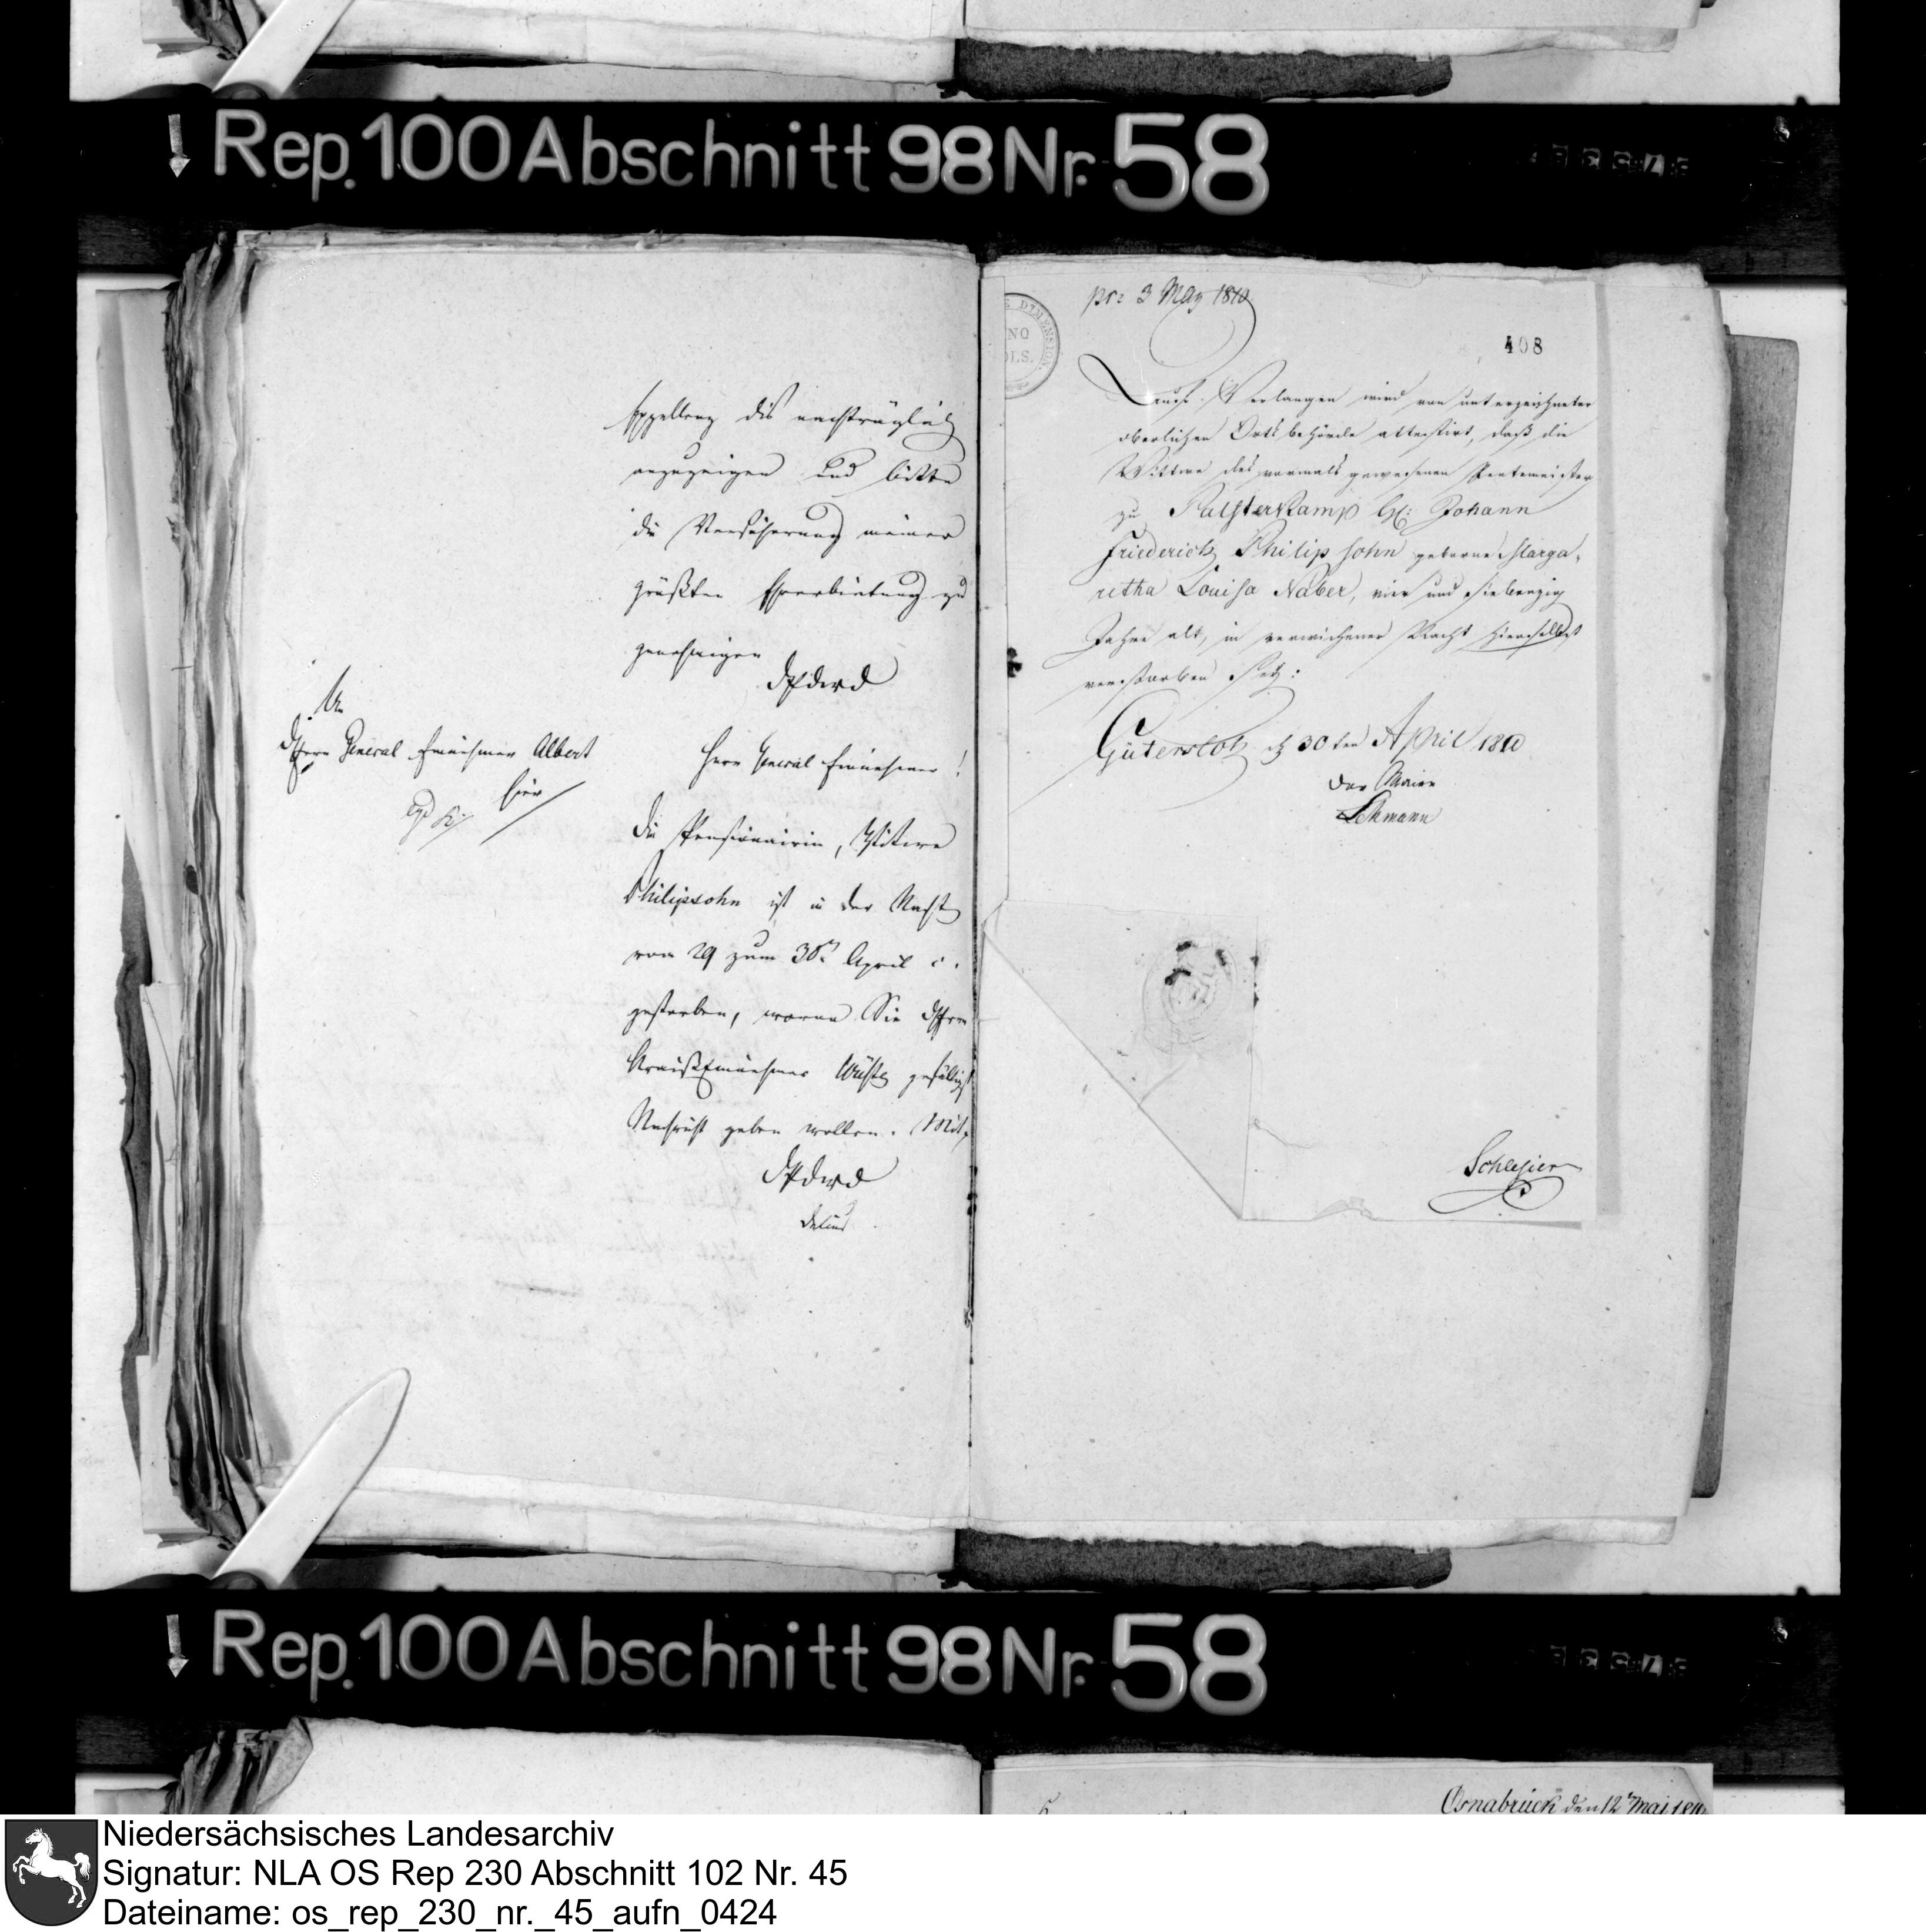 Rep. 100 Abschnitt 98 Nr. 58
Exzellenz dies nachträglich
anzuzeigen und bitte
die Versicherung meiner
größten Ehrerbietung zu
genehmigen
An
Herrn General Einnehmer Albert
hier
Herr General Einnehmer!
Die Pensionairin, Wittwe
Philipsohn ist in der Nacht
vom 29 zum 30t April c.
gestorben, wovon Sie dem
Kreis Einnehmer gefälligst
Nachricht geben wollen. Mit
Delius
pr: 3 May 1810
DIMENSION
408
Auf Verlangen wird von unterzeichneter
oberlichen Ortsbehörde attestirt, daß die
Wittwe des vormals gewesenen Rentemeister
zu Palsterkamp H: Johann
Friederich Philipsohn geborne Marga-
retha Louisa Naber, vier und siebenzig
Jahre alt, in verwichener Nacht hierselbst
verstorben sey:
Gütersloh d 30ten April 1810
Der Maire
Lehmann
Schlesier
Rep. 100 Abschnitt 98 Nr. 58
Osnabrück den 12t Mai 181
Niedersächsisches Landesarchiv
Signatur: NLA OS Rep 230 Abschnitt 102 Nr. 45
Dateiname: os_rep_230_nr._45_aufn_0424